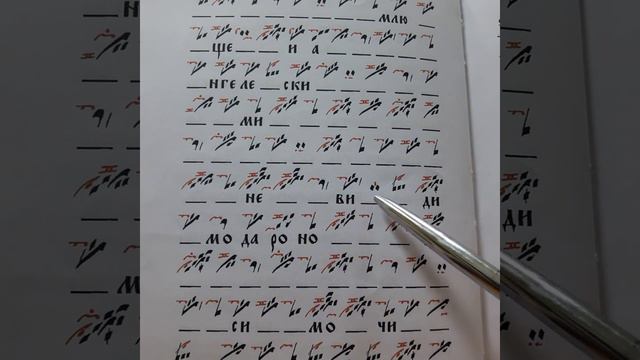 млю
ще и а
нгеле ски
ми
не ви ди
мо да ро но
си мо чи